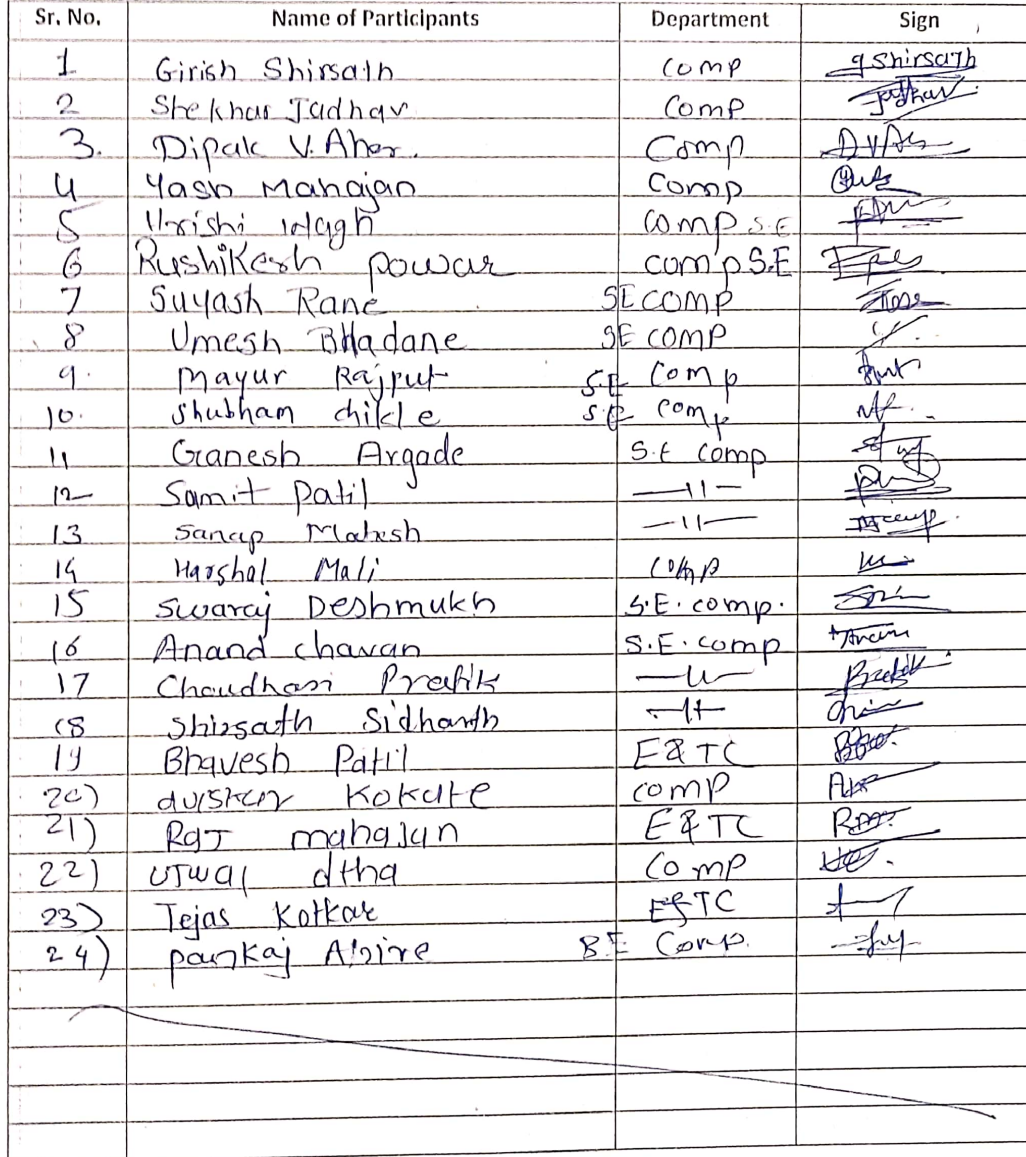 Sr. No. Name of Participants Department Sign
1 Girish Shirsath comp gshirsath
2 Shekhar Jadhav comp Jadhav
3. Dipak V. Aher. Comp
4 Yash Mahajan Comp
5 Urishi Wagh comp S.E
6 Rushikesh powar comp S.E
7 Suyash Rane SE comp
8 Umesh Bhadane SE comp
9. Mayur Rajput S.E Comp
10. Shubham chikle S.E comp
11 Ganesh Argade S.E comp
12 Samit Patil —11—
13 Sanap Mahesh —11—
14 Harshal Mali comp
15 Swaraj Deshmukh S.E. comp.
16 Anand chavan S.E. comp
17 Choudhari Pratik —11—
18 Shirsath Sidhanth —11—
19 Bhavesh Patil E&TC
20) Kokate comp
21) Raj mahajan E&TC
22) comp
23) Tejas Kotkar E&TC
24) pankaj Ahire B.E Comp.